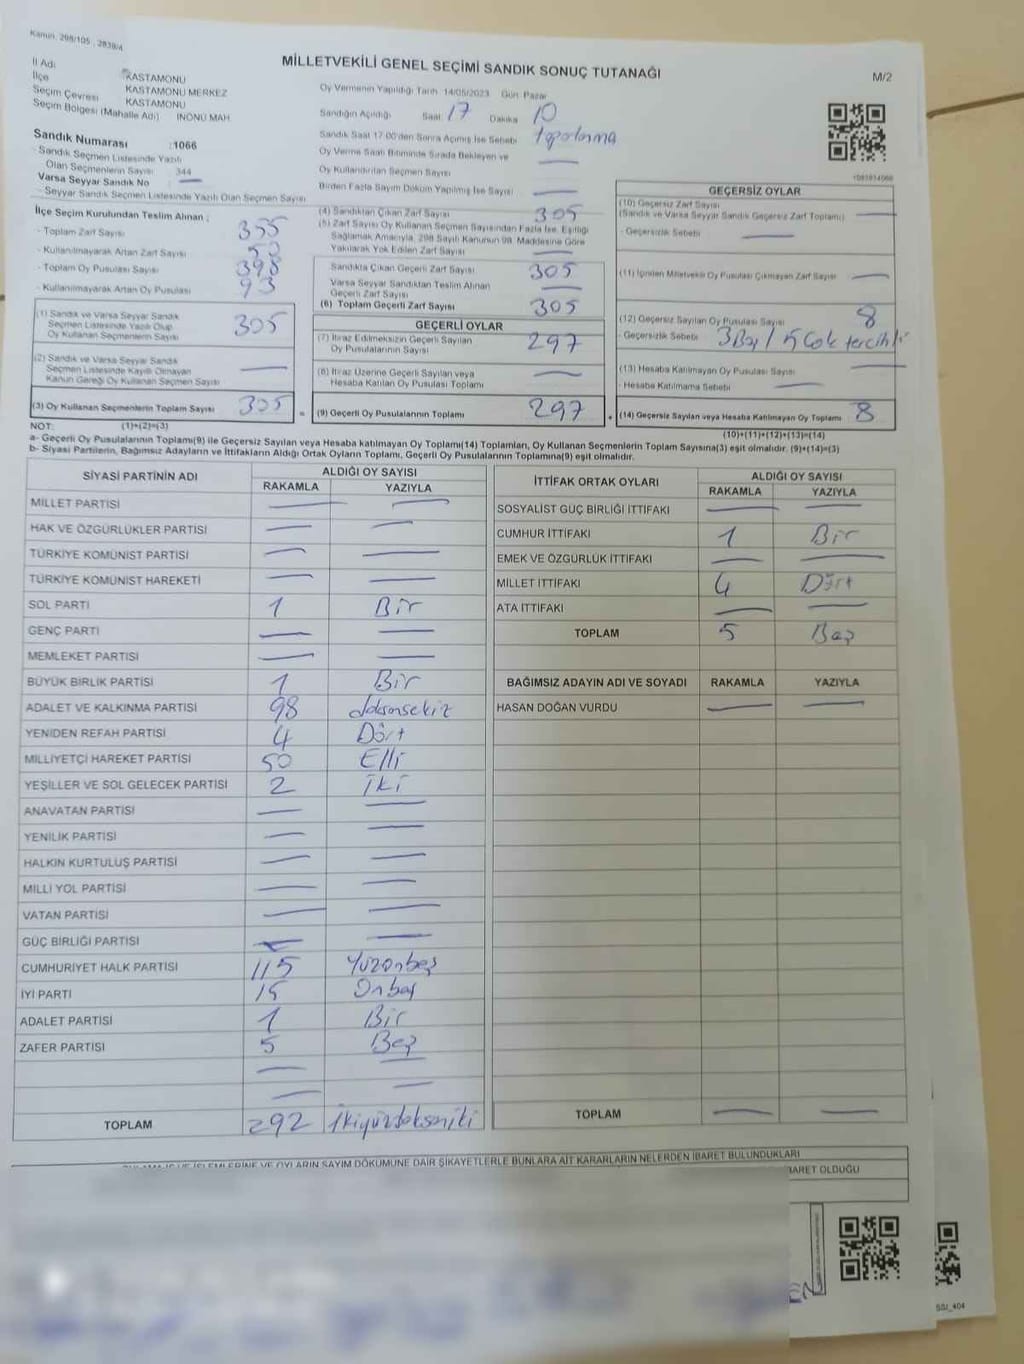 Kanun. 298/105 , 2839/4
MİLLETVEKİLİ GENEL SEÇİMİ SANDIK SONUÇ TUTANAĞI
M/2
İl Adı KASTAMONU
İlçe KASTAMONU MERKEZ
Seçim Çevresi KASTAMONU
Seçim Bölgesi (Mahalle Adı) İNÖNÜ MAH
Oy Vermenin Yapıldığı Tarih 14/05/2023 Gün Pazar
Sandığın Açıldığı Saat 17 Dakika 10
Sandık Saat 17.00'den Sonra Açılmış İse Sebebi
Oy Verme Saati Bitiminde Sırada Bekleyen ve
Oy Kullandırılan Seçmen Sayısı
Birden Fazla Sayım Döküm Yapılmış İse Sayısı
Sandık Numarası :1066
- Sandık Seçmen Listesinde Yazılı
Olan Seçmenlerin Sayısı 344
Varsa Seyyar Sandık No
- Seyyar Sandık Seçmen Listesinde Yazılı Olan Seçmen Sayısı
İlçe Seçim Kurulundan Teslim Alınan :
- Toplam Zarf Sayısı 355
- Kullanılmayarak Artan Zarf Sayısı 50
- Toplam Oy Pusulası Sayısı 398
- Kullanılmayarak Artan Oy Pusulası 93
(1) Sandık ve Varsa Seyyar Sandık
Seçmen Listesinde Yazılı Olup
Oy Kullanan Seçmenlerin Sayısı 305
(2) Sandık ve Varsa Seyyar Sandık
Seçmen Listesinde Kayıtlı Olmayan
Kanun Gereği Oy Kullanan Seçmen Sayısı
(3) Oy Kullanan Seçmenlerin Toplam Sayısı 305
(4) Sandıktan Çıkan Zarf Sayısı 305
(5) Zarf Sayısı Oy Kullanan Seçmen Sayısından Fazla İse, Eşitliği
Sağlamak Amacıyla, 298 Sayılı Kanunun 98. Maddesine Göre
Yakılarak Yok Edilen Zarf Sayısı
Sandıkta Çıkan Geçerli Zarf Sayısı 305
Varsa Seyyar Sandıktan Teslim Alınan
Geçerli Zarf Sayısı
(6) Toplam Geçerli Zarf Sayısı 305
GEÇERLİ OYLAR
(7) İtiraz Edilmeksizin Geçerli Sayılan
Oy Pusulalarının Sayısı 297
(8) İtiraz Üzerine Geçerli Sayılan veya
Hesaba Katılan Oy Pusulası Toplamı
= (9) Geçerli Oy Pusulalarının Toplamı 297
GEÇERSİZ OYLAR
(10) Geçersiz Zarf Sayısı
(Sandık ve Varsa Seyyar Sandık Geçersiz Zarf Toplamı)
- Geçersizlik Sebebi
(11) İçinden Milletvekili Oy Pusulası Çıkmayan Zarf Sayısı
(12) Geçersiz Sayılan Oy Pusulası Sayısı 8
- Geçersizlik Sebebi 3 Boş / 5 Çok tercihli
(13) Hesaba Katılmayan Oy Pusulası Sayısı
- Hesaba Katılmama Sebebi
+ (14) Geçersiz Sayılan veya Hesaba Katılmayan Oy Toplamı 8
NOT: (1)+(2)=(3) (10)+(11)+(12)+(13)=(14)
a- Geçerli Oy Pusulalarının Toplamı(9) ile Geçersiz Sayılan veya Hesaba katılmayan Oy Toplamı(14) Toplamları, Oy Kullanan Seçmenlerin Toplam Sayısına(3) eşit olmalıdır. (9)+(14)=(3)
b- Siyasi Partilerin, Bağımsız Adayların ve İttifakların Aldığı Ortak Oyların Toplamı, Geçerli Oy Pusulalarının Toplamına(9) eşit olmalıdır.
SİYASİ PARTİNİN ADI ALDIĞI OY SAYISI
RAKAMLA YAZIYLA
MİLLET PARTİSİ
HAK VE ÖZGÜRLÜKLER PARTİSİ
TÜRKİYE KOMÜNİST PARTİSİ
TÜRKİYE KOMÜNİST HAREKETİ
SOL PARTİ 1 Bir
GENÇ PARTİ
MEMLEKET PARTİSİ
BÜYÜK BİRLİK PARTİSİ 1 Bir
ADALET VE KALKINMA PARTİSİ 98 doksansekiz
YENİDEN REFAH PARTİSİ 4 Dört
MİLLİYETÇİ HAREKET PARTİSİ 50 Elli
YEŞİLLER VE SOL GELECEK PARTİSİ 2 iki
ANAVATAN PARTİSİ
YENİLİK PARTİSİ
HALKIN KURTULUŞ PARTİSİ
MİLLİ YOL PARTİSİ
VATAN PARTİSİ
GÜÇ BİRLİĞİ PARTİSİ
CUMHURİYET HALK PARTİSİ 115 Yüzonbeş
İYİ PARTİ 15 Onbeş
ADALET PARTİSİ 1 Bir
ZAFER PARTİSİ 5 Beş
TOPLAM 292 ikiyüzdoksaniki
İTTİFAK ORTAK OYLARI ALDIĞI OY SAYISI
RAKAMLA YAZIYLA
SOSYALİST GÜÇ BİRLİĞİ İTTİFAKI
CUMHUR İTTİFAKI 1 Bir
EMEK VE ÖZGÜRLÜK İTTİFAKI
MİLLET İTTİFAKI 4 Dört
ATA İTTİFAKI
TOPLAM 5 Beş
BAĞIMSIZ ADAYIN ADI VE SOYADI RAKAMLA YAZIYLA
HASAN DOĞAN VURDU
TOPLAM
OYLARIN SAYIM DÖKÜMÜNE DAİR ŞİKAYETLERLE BUNLARA AİT KARARLARIN NELERDEN İBARET BULUNDUKLARI
İBARET OLDUĞU